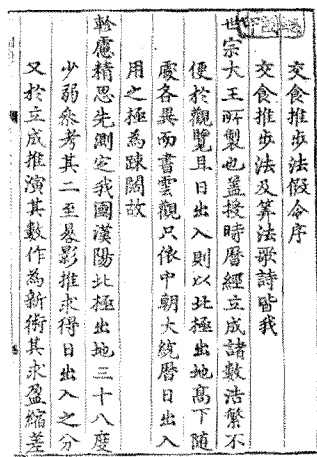 交食推步法假令序
交食推步法及筭法歌詩皆我
世宗大王所製也盖授時曆經立成諸數浩繁不
便於觀覽且日出入則以北極出地高下隨
處各異而書雲觀只依中朝大統曆日出入
用之極為踈闊故
軫慮精思先測定我國漢陽北極出地三十八度
少弱叅考其二至晷影推求得日出入之分
又於立成推演其數作為新術其求盈縮差